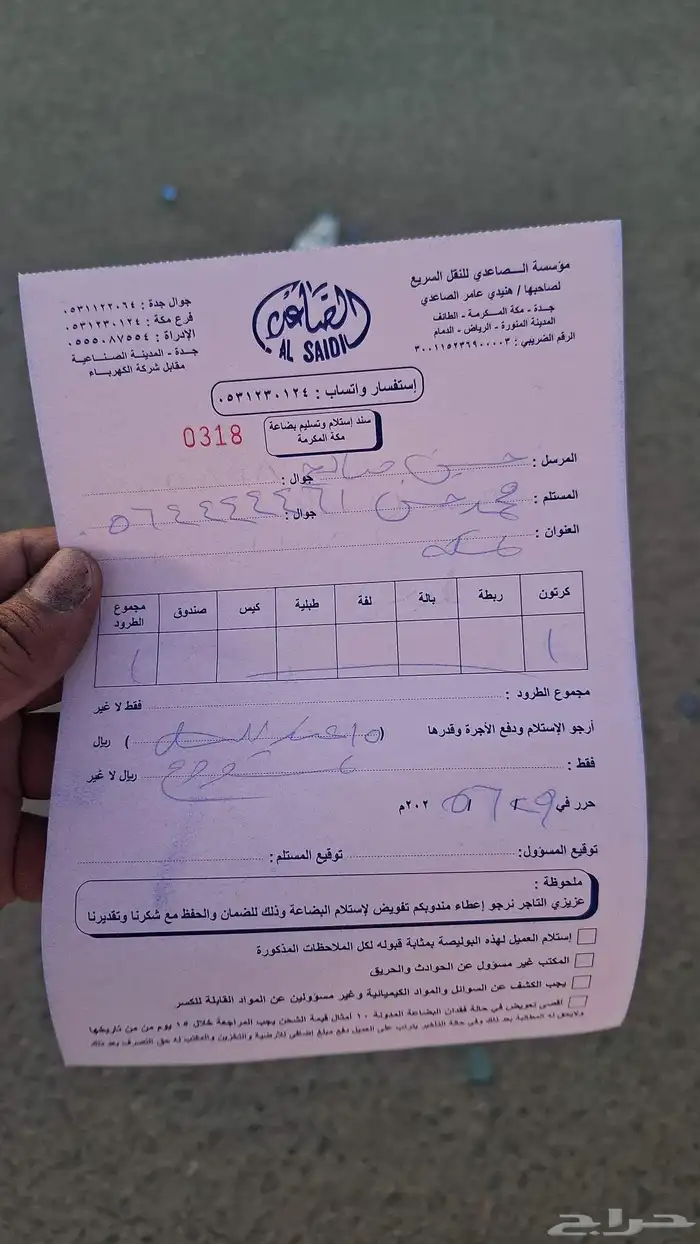 مؤسسة الصاعدي للنقل السريع
لصاحبها / هنيدي عامر الصاعدي
جدة - مكة المكرمة - الطائف
المدينة المنورة - الرياض - الدمام
الرقم الضريبي : ٣٠٠١١٥٢٣٦٩٠٠٠٠٣
الصاعدي
AL SAIDI
جوال جدة : ٠٥٣١١٢٢٠٦٤
فرع مكة : ٠٥٣١٢٣٠١٢٤
الإدراة : ٠٥٥٥٠٨٧٥٥٤
جدة - المدينة الصناعية
مقابل شركة الكهرباء
إستفسار واتساب : ٠٥٣١٢٣٠١٢٤
سند إستلام وتسليم بضاعة
مكة المكرمة
0318
المرسل : حسين صالح جوال :
المستلم : محمد حسن جوال : ٠٥٦٤٤٤٤٤٦١
العنوان : مكه
كرتون ربطة بالة لفة طبلية كيس صندوق مجموع الطرود
١ ١
مجموع الطرود : فقط لا غير
أرجو الإستلام ودفع الأجرة وقدرها ( ) ريال
فقط : ريال لا غير
حرر في ٢٠٢م
توقيع المسؤول: توقيع المستلم :
ملحوظة :
عزيزي التاجر نرجو إعطاء مندوبكم تفويض لإستلام البضاعة وذلك للضمان والحفظ مع شكرنا وتقديرنا
إستلام العميل لهذه البوليصة بمثابة قبوله لكل الملاحظات المذكورة
المكتب غير مسؤول عن الحوادث والحريق
يجب الكشف عن السوائل والمواد الكيميائية وغير مسؤولين عن المواد القابلة للكسر
أقصى تعويض في حالة فقدان البضاعة المدونة ١٠ أمثال قيمة الشحن يجب المراجعة خلال ١٥ يوم من من تاريخها
ولايحق له المطالبة بعد ذلك وفي حالة التأخير يترتب على العميل دفع مبلغ إضافي للأرضية والتخزين والمكتب له حق التصرف بعد ذلك
حراج